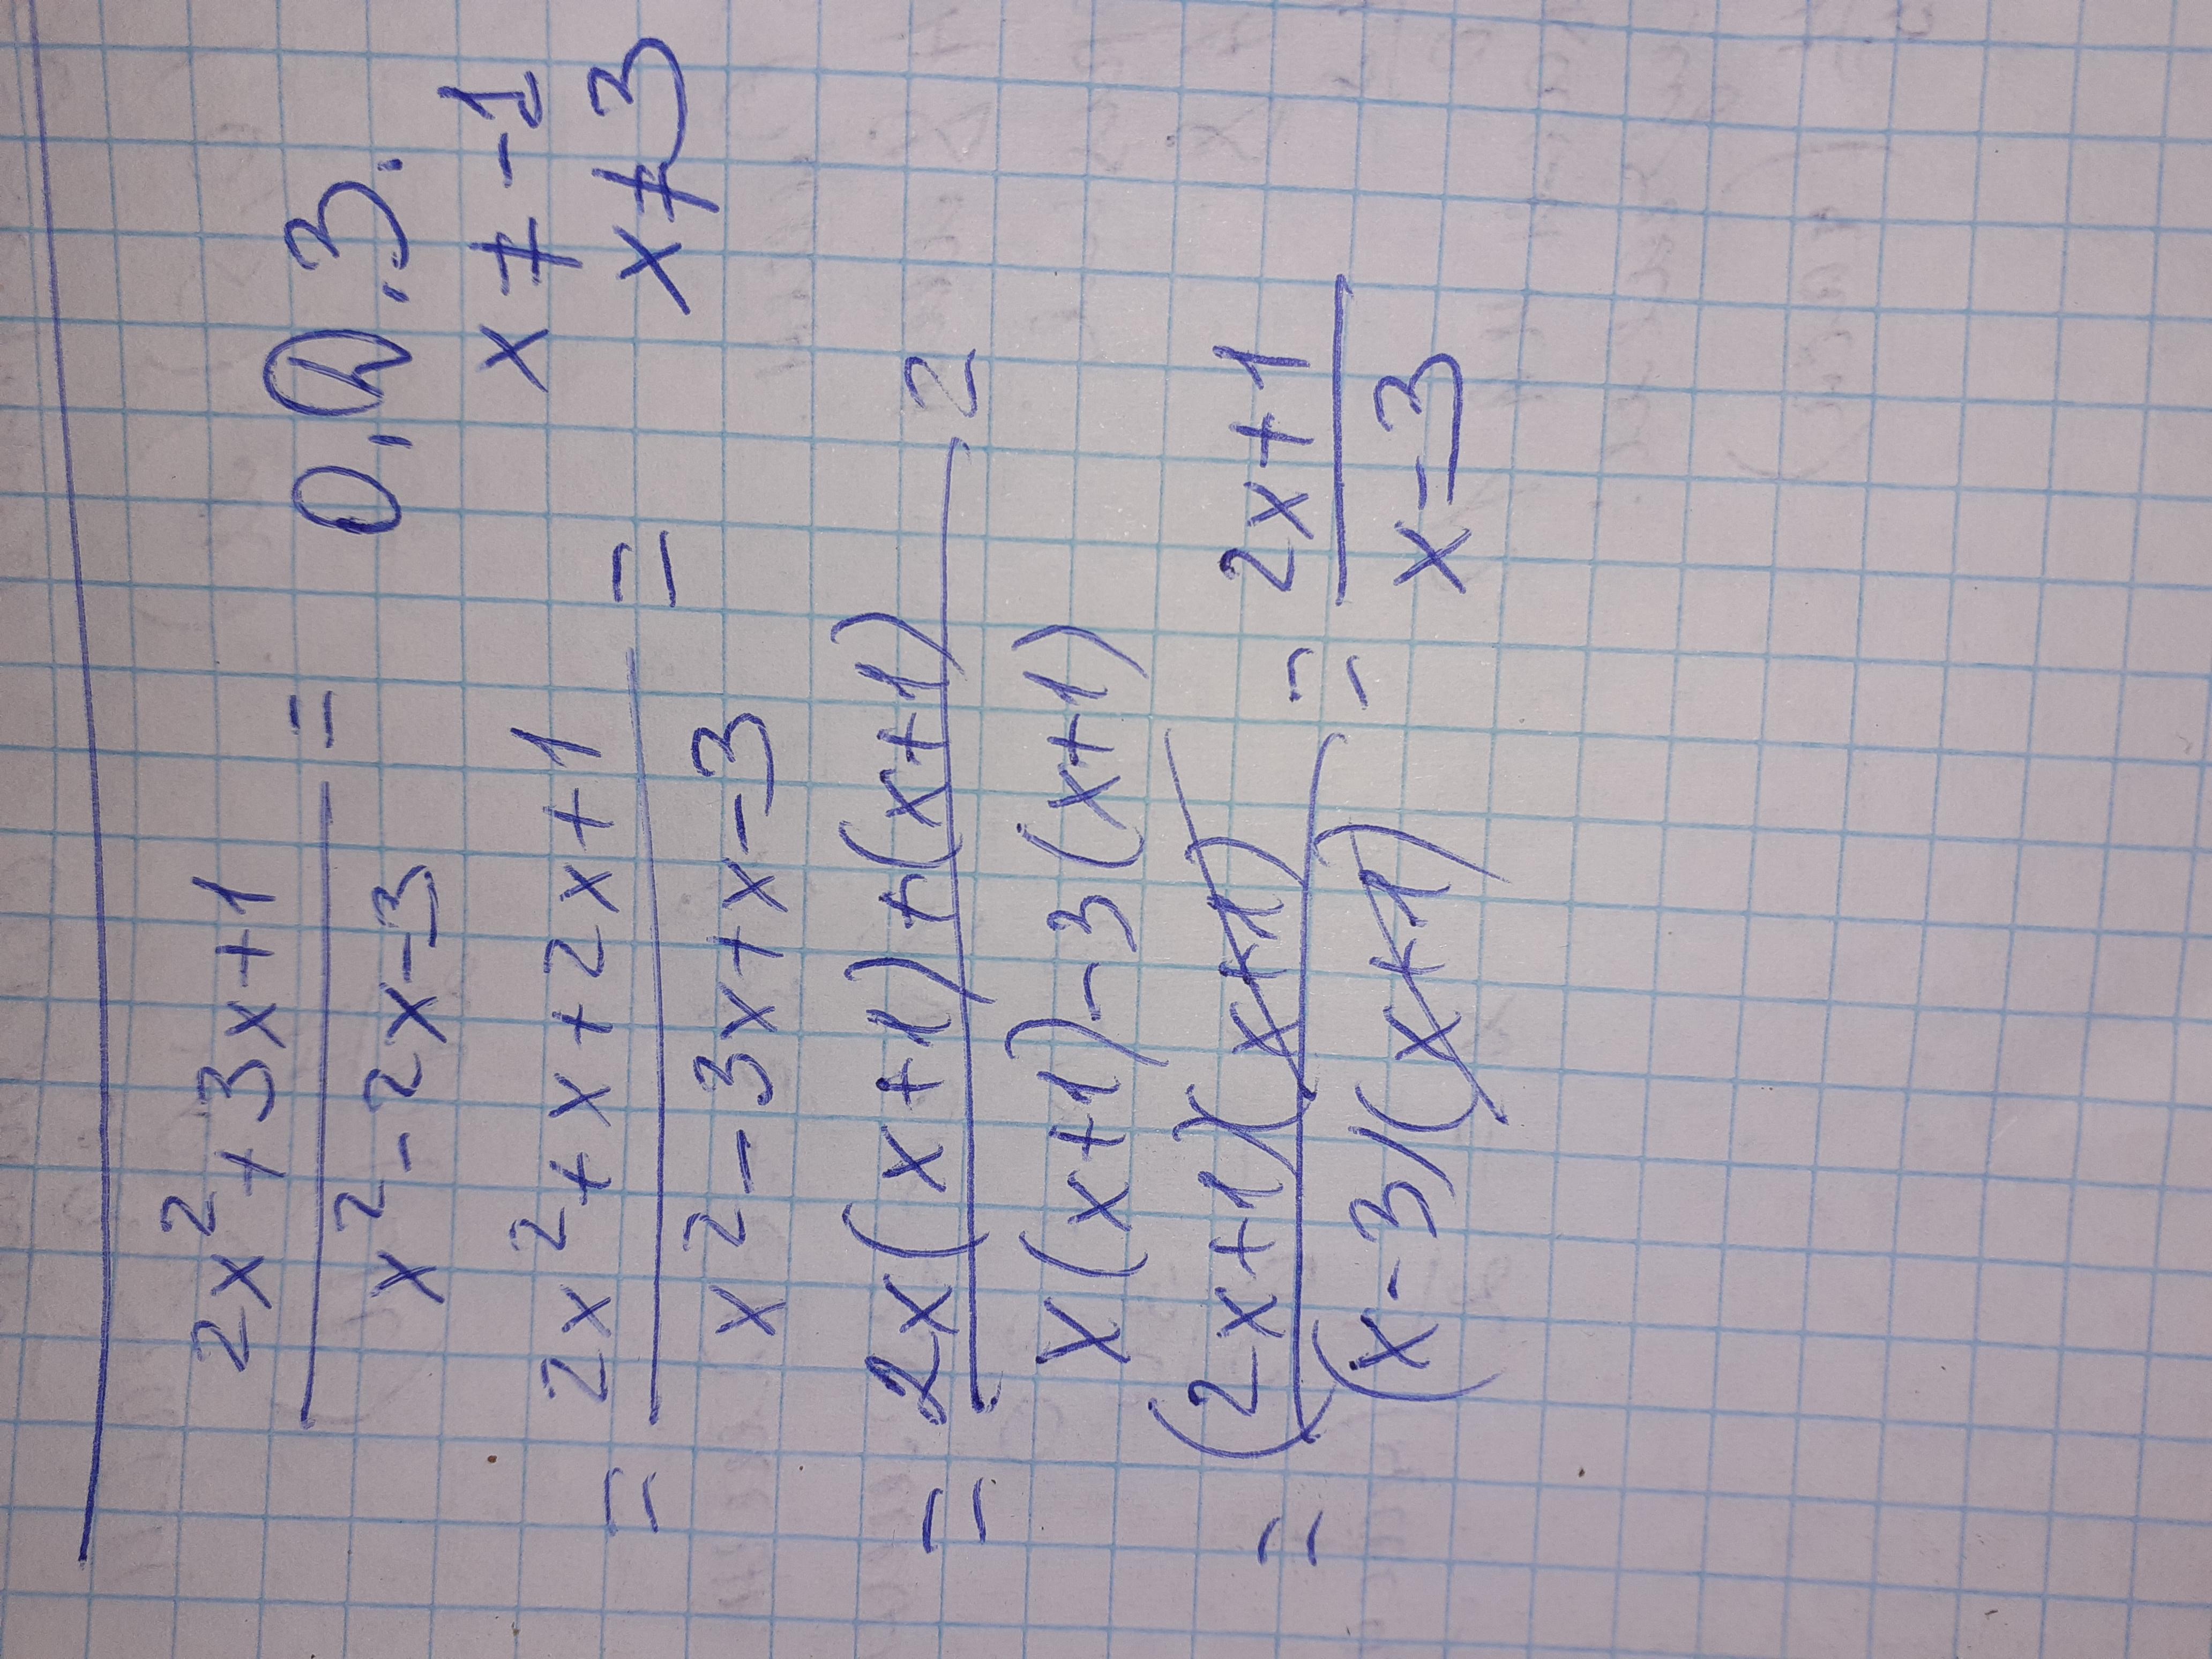 2x² + 3x + 1
=
x² - 2x - 3
О.Д.З.
x ≠ -1
x ≠ 3
= 2x² + x + 2x + 1
=
x² - 3x + x - 3
= 2x(x+1)+(x+1) 2
x(x+1)-3(x+1)
= (2x+1)(x+1) = 2x+1
(x-3)(x+1) x-3